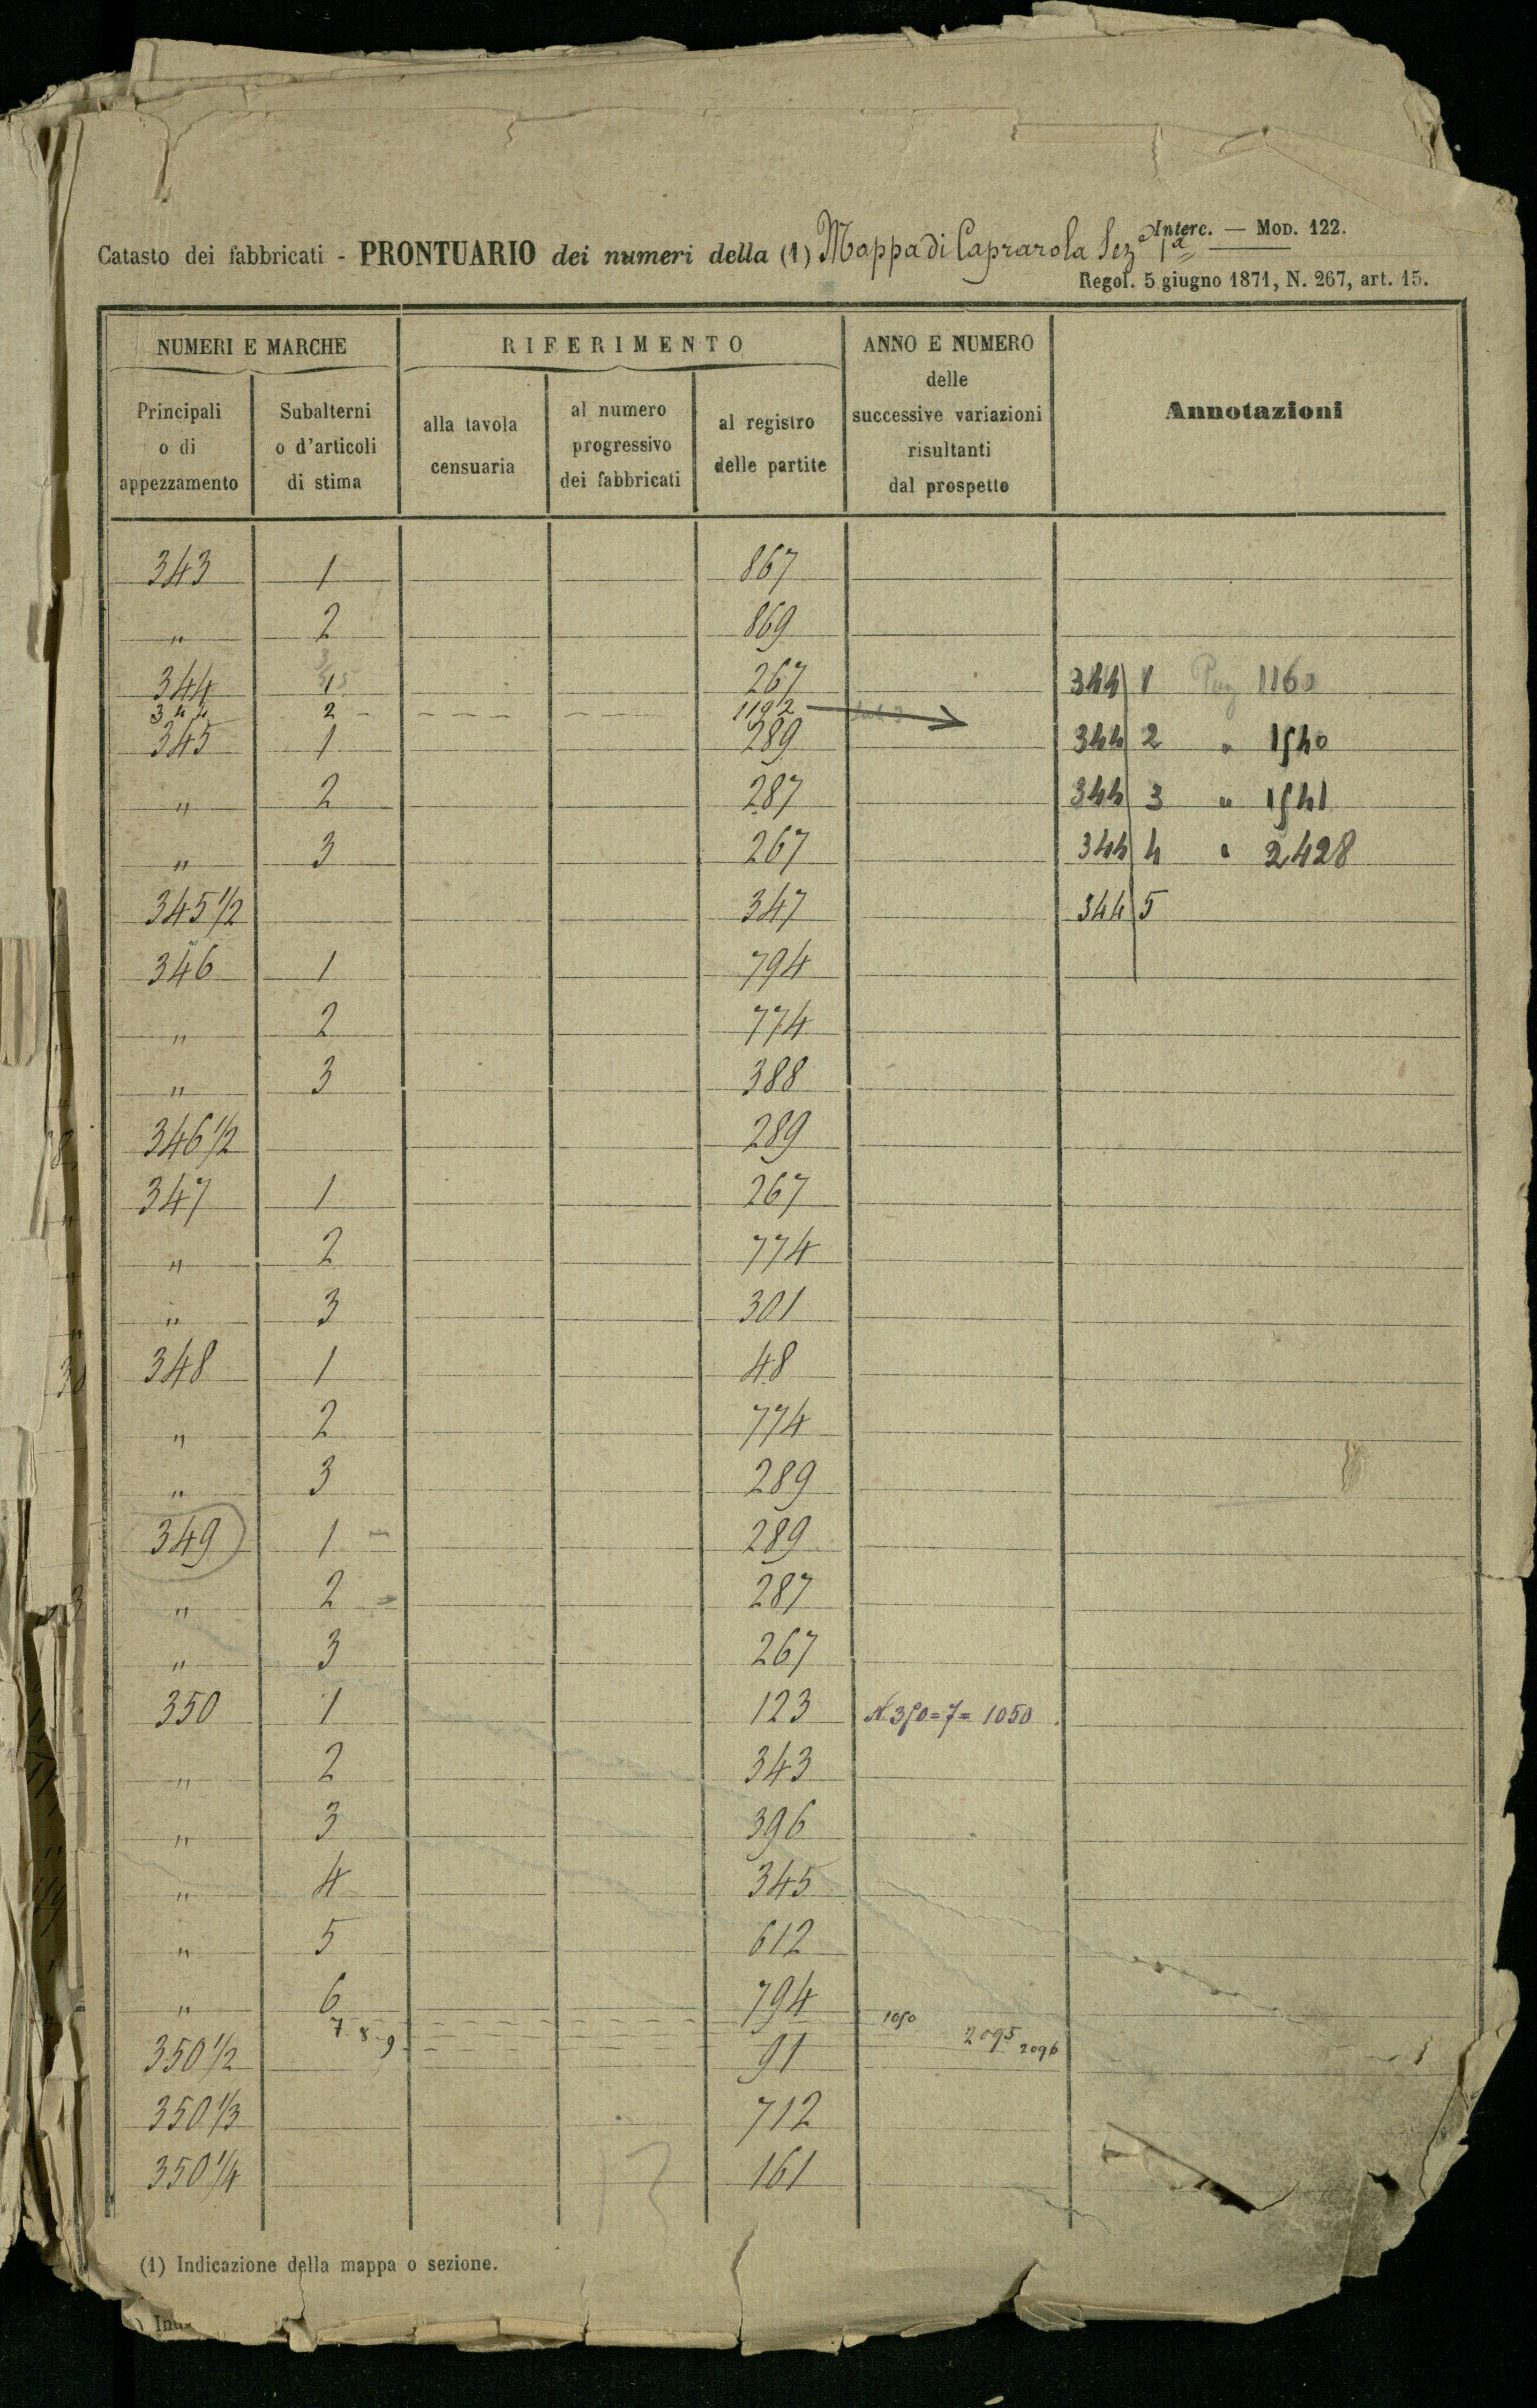 Interc. — Mod. 122.
Catasto dei fabbricati - PRONTUARIO dei numeri della (1) Mappa di Caprarola Sez.e 1a
Regol. 5 giugno 1871, N. 267, art. 15.
NUMERI E MARCHE
RIFERIMENTO
ANNO E NUMERO
delle
successive variazioni
risultanti
dal prospetto
Annotazioni
Principali
o di
appezzamento
Subalterni
o d'articoli
di stima
alla tavola
censuaria
al numero
progressivo
dei fabbricati
al registro
delle partite
343 1 867
" 2 869
344 1 267 344 1 Pag 1160
344 2 1192
345 1 289 344 2 " 1540
" 2 287 344 3 " 1541
" 3 267 344 4 " 2428
345 1/2 347 344 5
346 1 794
" 2 774
" 3 388
346 1/2 289
347 1 267
" 2 774
" 3 301
348 1 48
" 2 774
" 3 289
349 1 289
" 2 287
" 3 267
350 1 123 N. 350=7= 1050
" 2 343
" 3 396
" 4 345
" 5 612
" 6 794
7 8 9 1050 2095 2096
350 1/2 91
350 1/3 712
350 1/4 161
13
(1) Indicazione della mappa o sezione.